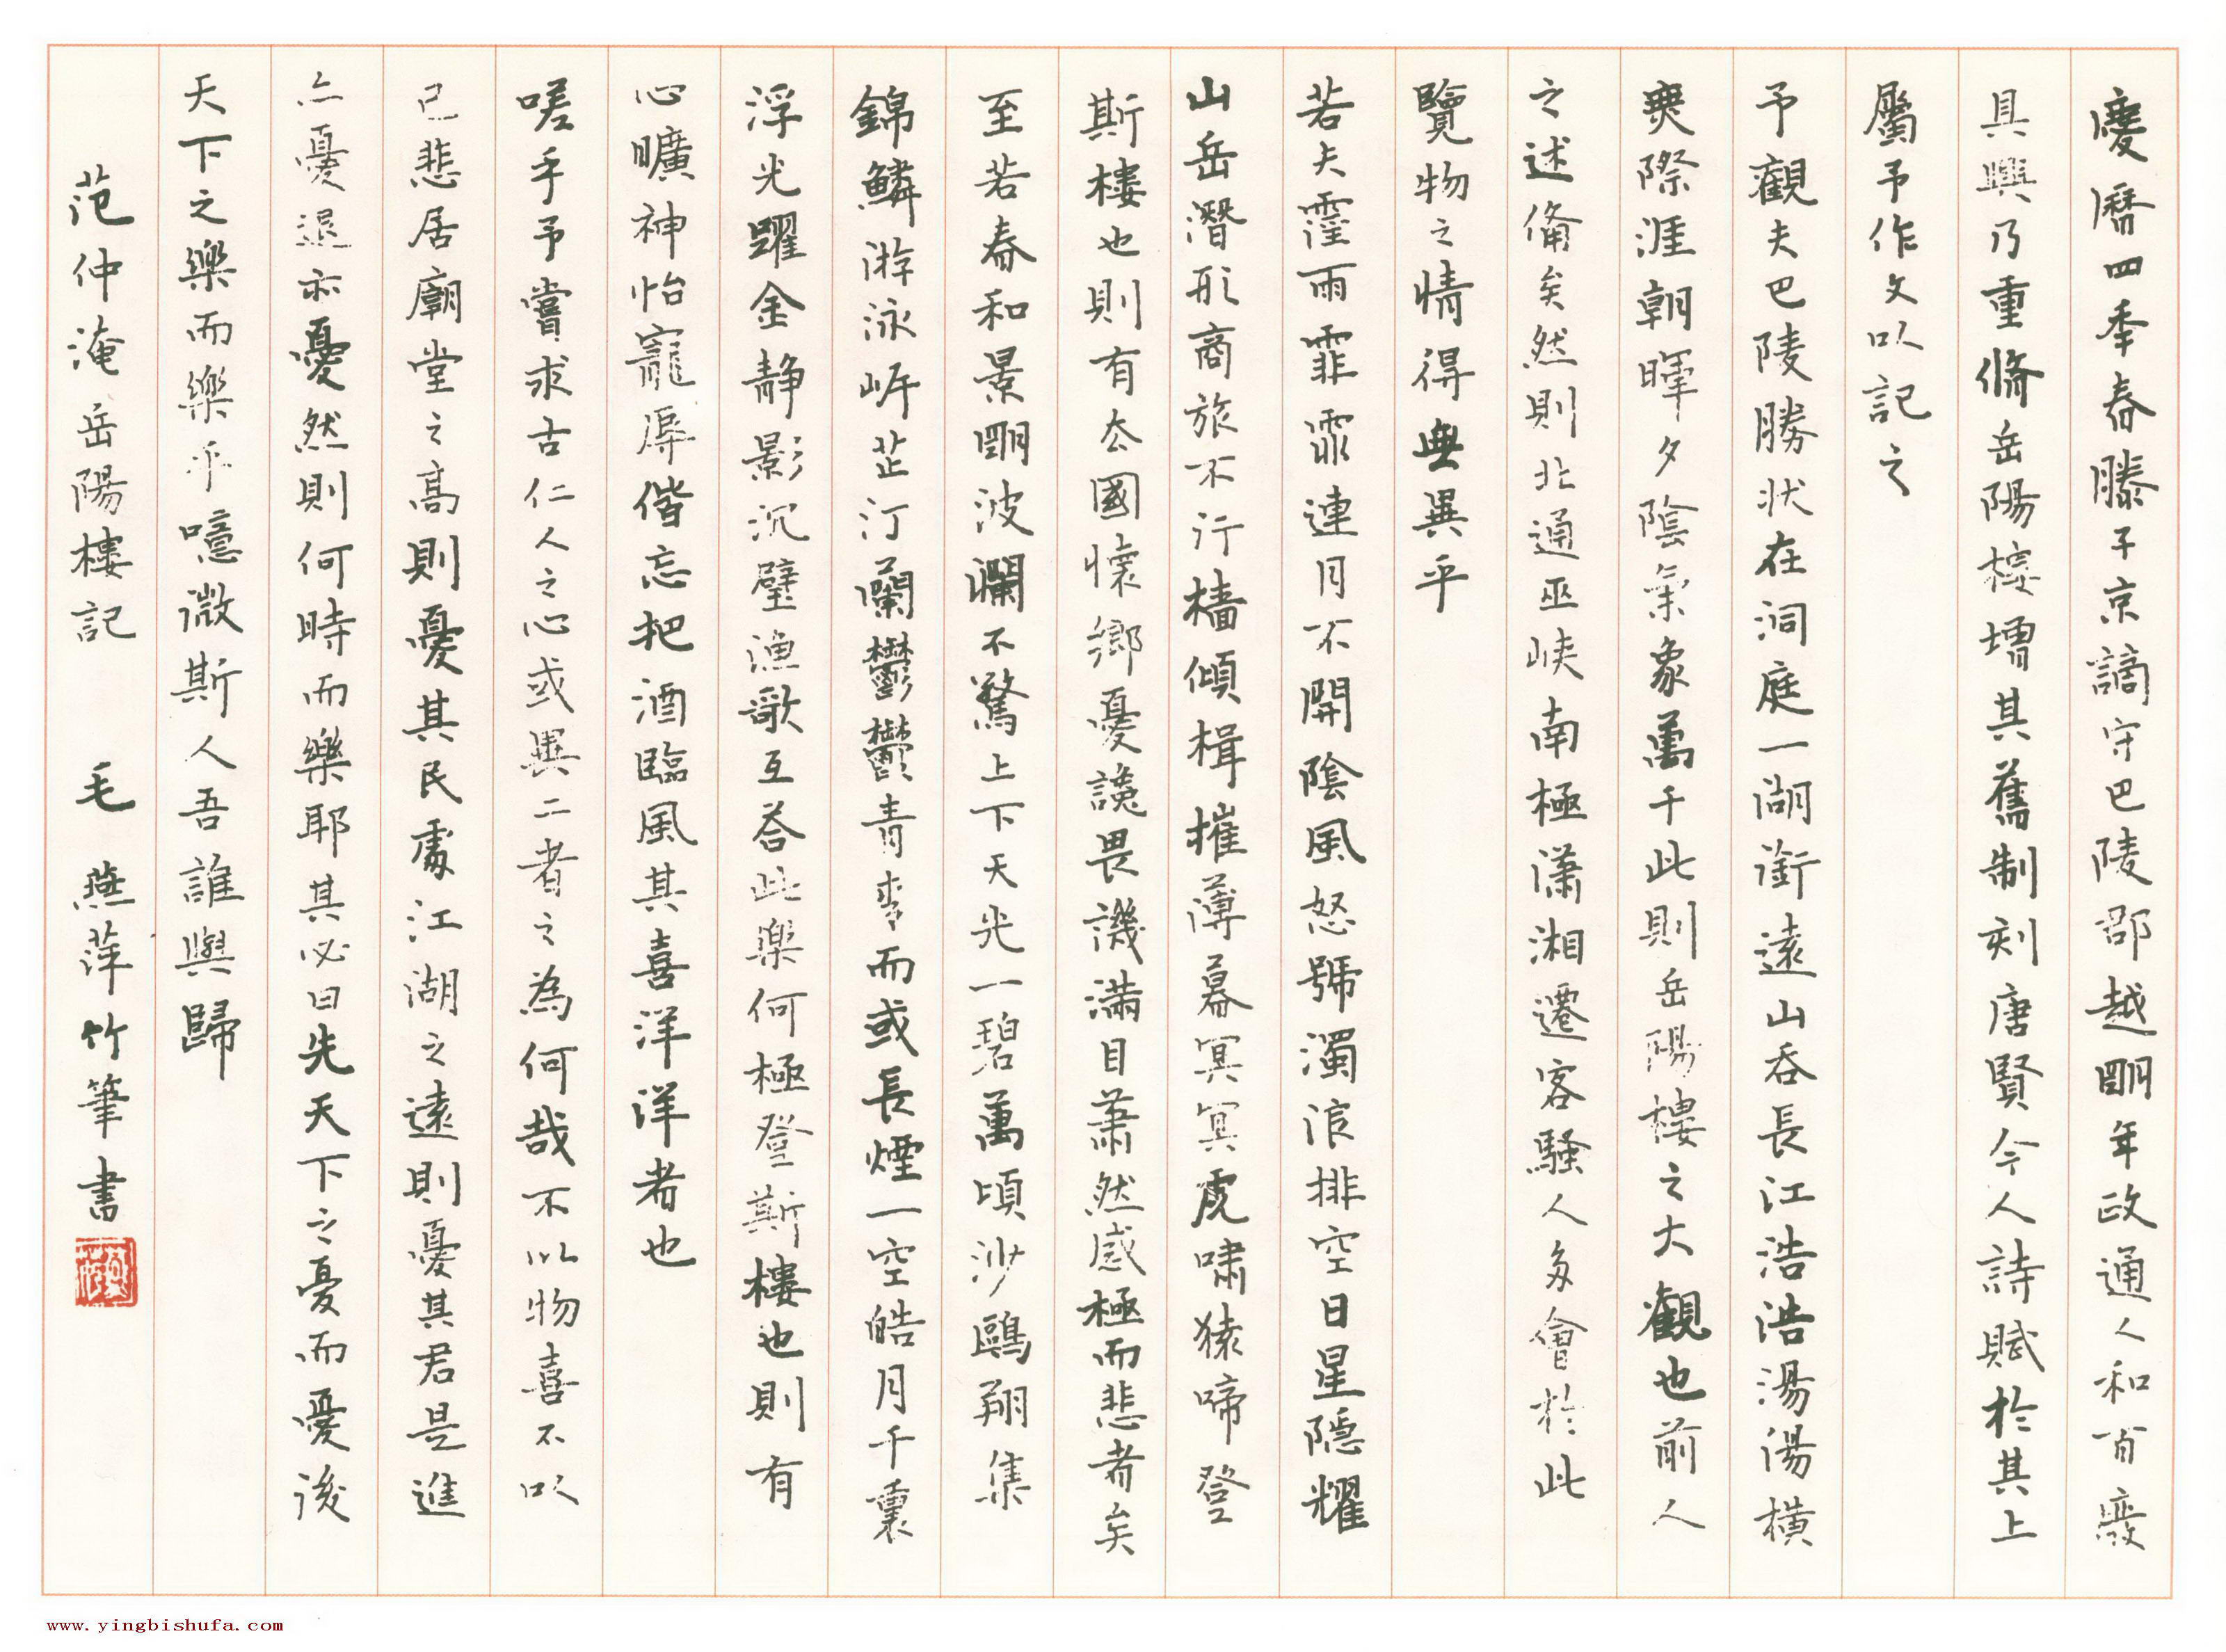 慶曆四年春滕子京謫守巴陵郡越明年政通人和百廢
具興乃重脩岳陽樓增其舊制刻唐賢今人詩賦於其上
屬予作文以記之
予觀夫巴陵勝狀在洞庭一湖銜遠山吞長江浩浩湯湯橫
無際涯朝暉夕陰氣象萬千此則岳陽樓之大觀也前人
之述備矣然則北通巫峽南極瀟湘遷客騷人多會於此
覽物之情得無異乎
若夫霪雨霏霏連月不開陰風怒號濁浪排空日星隱耀
山岳潛形商旅不行檣傾楫摧薄暮冥冥虎嘯猿啼登
斯樓也則有去國懷鄉憂讒畏譏滿目蕭然感極而悲者矣
至若春和景明波瀾不驚上下天光一碧萬頃沙鷗翔集
錦鱗游泳岸芷汀蘭鬱鬱青青而或長煙一空皓月千裏
浮光躍金靜影沉璧漁歌互答此樂何極登斯樓也則有
心曠神怡寵辱偕忘把酒臨風其喜洋洋者也
嗟乎予嘗求古仁人之心或異二者之為何哉不以物喜不以
己悲居廟堂之高則憂其民處江湖之遠則憂其君是進
亦憂退亦憂然則何時而樂耶其必曰先天下之憂而憂後
天下之樂而樂乎噫微斯人吾誰與歸
范仲淹岳陽樓記 毛燕萍竹筆書
www.yingbishufa.com